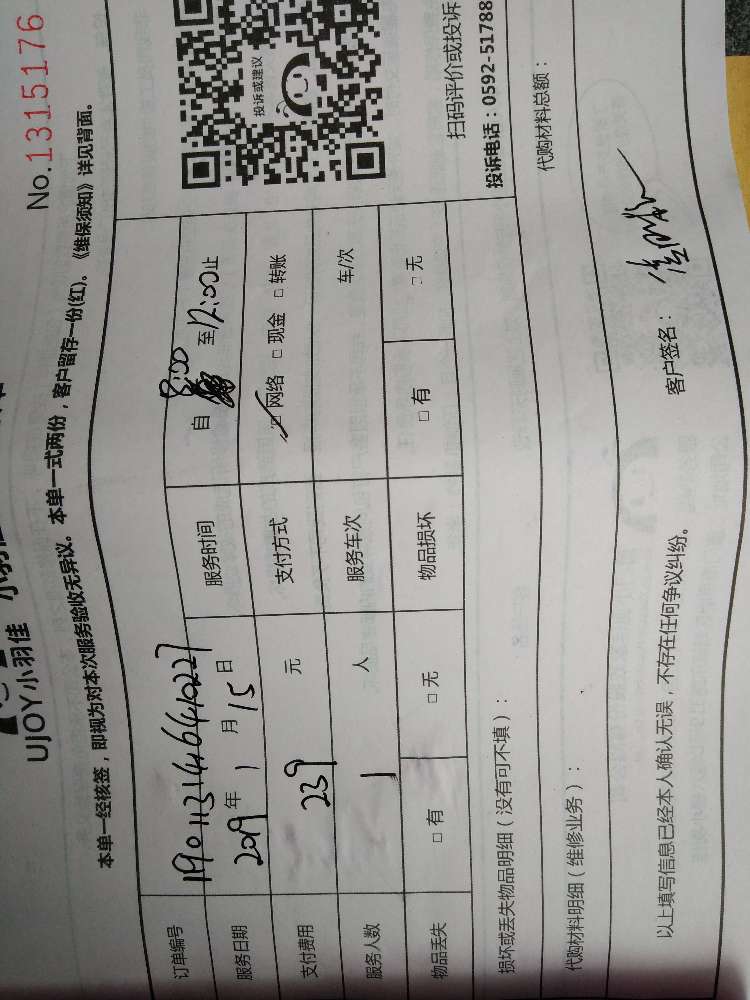 UJOY小羽佳
No.1315176
本单一经核签，即视为对本次服务验收无异议。本单一式两份，客户留存一份(红)。《维保须知》详见背面。
订单编号 19011314464410227
服务日期 2019 年 1 月 15 日 服务时间 自 8:00 至 12:00 止
支付费用 239 元 支付方式 ☑ 网络 □ 现金 □ 转账
服务人数 1 人 服务车次 车/次
物品丢失 □ 有 □ 无 物品损坏 □ 有 □ 无
投诉或建议
扫码评价或投诉
投诉电话：0592-51788
损坏或丢失物品明细（没有可不填）：
代购材料明细（维修业务）： 代购材料总额：
以上填写信息已经本人确认无误，不存在任何争议纠纷。 客户签名：